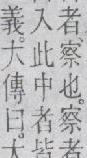 者察也察者
人此中者皆
義大傳曰大